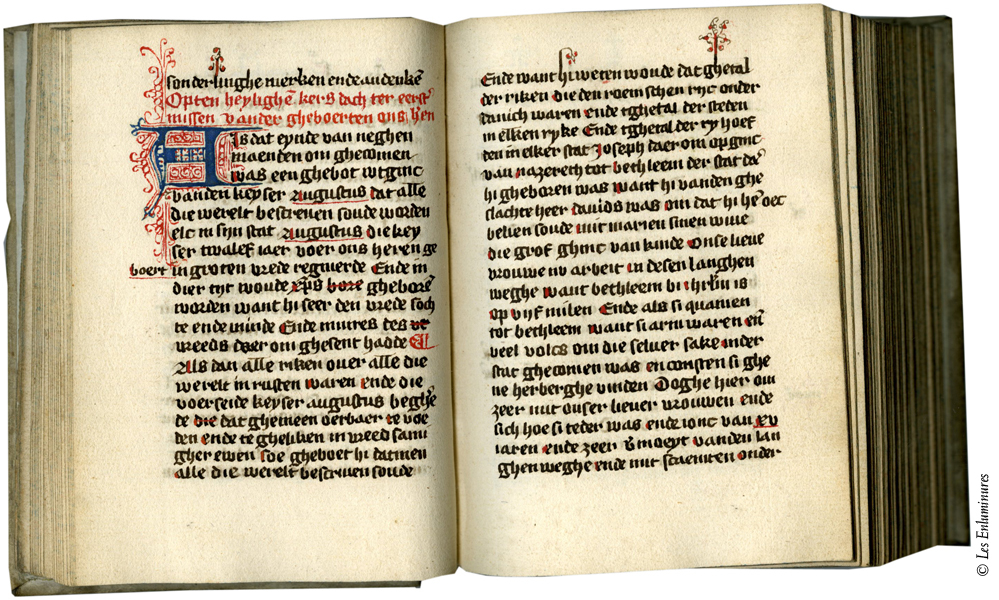 sonderlinghe merken ende an denkē
Opten heylighē kers dach ter eerst
missen vander gheboerten ons hēn
Als dat eynde van neghen
maenden om ghecomen
was een ghebot wtginc
vanden keyser Augustus dat alle
die werelt bescreuen soude worden
elc in sijn stat Augustus die key
ser twalef iaer voer ons heren ge
boert in groten vrede regnierde Ende in
dier tijt woude xp̄s bore gheborē
worden want hi seer den vrede soch
te ende minde Ende mitres des
vreeds daer om ghesent hadde
Als dan alle riken ouer alle die
werelt in rusten waren ende die
voerseide keyser augustus beghe
de die dat ghemeen oerbaer te voe
den ende te gheliken in vreed sam
gher ewen soe gheboet hi datmen
alle die werelt bescriuen soude
Ende want hi weten woude dat ghetal
der riken die den roemschen rijc onder
danich waren ende tghetal der steden
in elken ryke Ende tghetal der
den in elker stat Joseph daer om op ginc
van nazereth tot bethleem der stat da
hi gheboren was want hi vanden ghe
slachte heer dauids was om dat hi hē oec
belien soude mit marien sinen wiue
die grof ghinc van kinde Onse lieue
vrouwe nv arbeit in desen langhen
weghe want bethleem bi ihrlm is
op vijf milen Ende als si quamen
tot bethleem want si arm waren eñ
veel volcs om die seluer sake inder
stat ghecomen was en consten si ghe
ne herberghe vinden Doghe hier om
zeer mit onser lieuer vrouwen ende
sich hoe si teder was ende ionc van xv
iaren ende zeer vmoeyt vanden lan
ghen weghe ende mit scaemten onder
© Les Enluminures